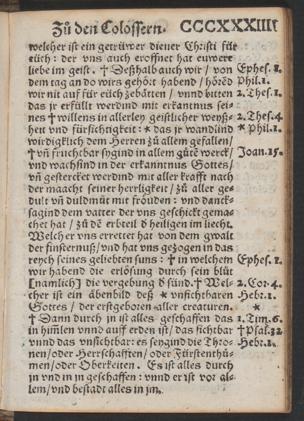 Zů den Colossern. CCCXXXIIII
welcher ist ein getrüwer diener Christi für
eüch: der vns auch eroffnet hat euwere
liebe im geist. ✝ Deßhalb auch wir / von Ephes. 1.
dem tag an do wirs gehört habend / hörēd Phil. 1.
wir nit auf für eüch zebätten / vnnd bitten 2. Thes. 1.
das jr erfüllt werdind mit erkantnus sei-
nes ✝ willens in allerley geistlicher weyß- 2. Thes. 4.
heit vnd fürsichtigkeit: * das jr wandlind * Phil. 1.
wirdigklich dem Herren zů allem gefallen /
✝ vñ fruchtbar sygind in allem gůtē werck / Joan. 15.
vnd wachsind in der erkanntnus Gottes /
vñ gestercket werdind mit aller krafft nach
der maacht seiner herrligkeit / zů aller ge-
dult vñ duldmüt mit fröuden: vnd danck-
sagind dem vatter der vns geschickt gema-
chet hat / zů dē erbteil d heiligen im liecht.
Welcher vns erretter hat von dem gwalt
der finsternuß / vnd hat vns gezogen in das
reych seines geliebten suns: ✝ in welchem Ephes. 1.
wir habend die erlösung durch sein blůt
[namlich] die vergebung d sünd. ✝ Wel- 2. Cor. 4.
cher ist ein äbenbild deß * vnsichtbaren Hebr. 1.
Gottes / der erstgeboren aller creaturen. *
✝ Dann durch jn ist alles geschaffen das 1. Tim. 6.
in himlen vnnd auff erden ist / das sichtbar ✝ Psal. 32
vnnd das vnsichtbar: es seygind die Thro- Hebr. 1.
nen / oder Herrschafften / oder Fürstenthů-
men / oder Oberkeiten. Es ist alles durch
jn vnd in jn geschaffen: vnnd er ist vor al-
lem / vnd bestadt alles in jm.